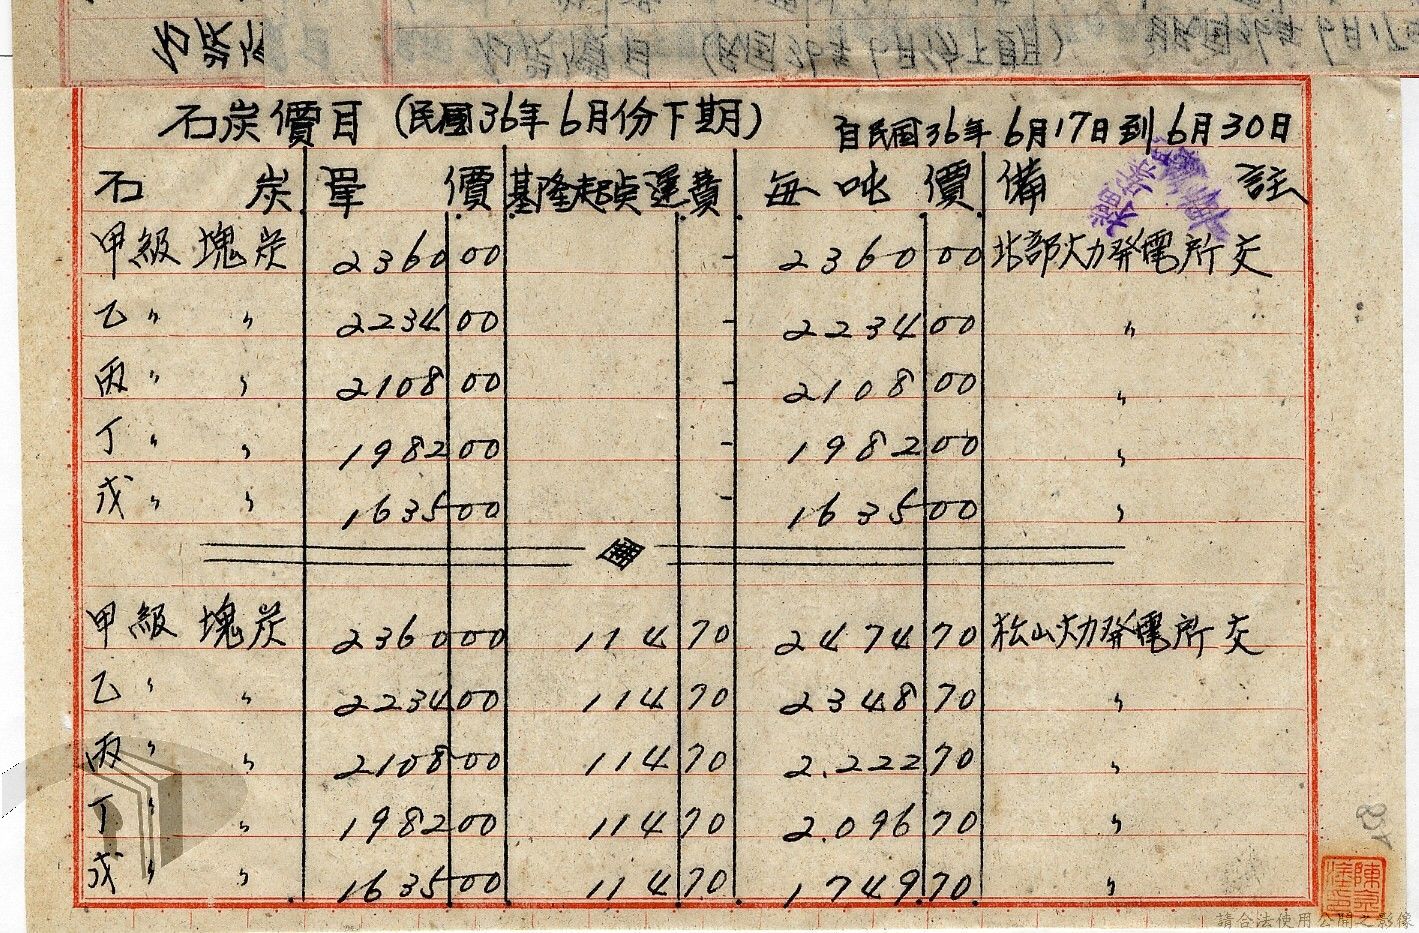 石炭價目 (民國36年6月份下期) 自民國36年6月17日到6月30日
石炭 單價 基隆起点運費 每吨價 備註
甲級塊炭 2360 00 - 2360 00 北部火力発電所交
乙〃〃 2234 00 - 2234 00 〃
丙〃〃 2108 00 - 2108 00 〃
丁〃〃 1982 00 - 1982 00 〃
戊〃〃 1635 00 - 1635 00 〃
甲級塊炭 2360 00 114 70 2474 70 松山火力発電所交
乙〃〃 2234 00 114 70 2348 70 〃
丙〃〃 2108 00 114 70 2.222 70 〃
丁〃〃 1982 00 114 70 2.096 70 〃
戊〃〃 1635 00 114 70 1749.70. 〃
請合法使用公開之影像